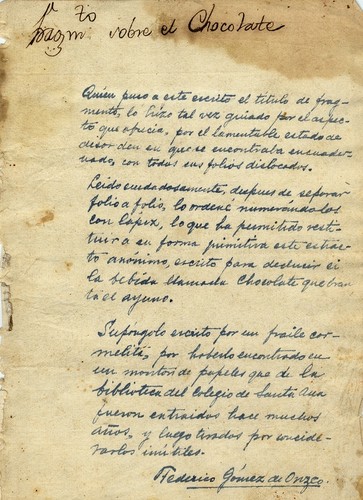 Fragmto sobre el Chocolate
Quien puso a este escrito el titulo de frag-
mento, lo hizo tal vez guiado por el aspec-
to que ofrecia, por el lamentable estado de
desorden en que se encontraba encuader-
nado, con todos sus folios dislocados.
Leído cuidadosamente, despues de separar
folio a folio, lo ordené numerandolos
con lapiz, lo que ha permitido resti-
tuir a su forma primitiva este extrac-
to anónimo, escrito para deducir si
la bebida llamada Chocolate quebran-
ta el ayuno.
Supongolo escrito por un fraile car-
melita, por haberlo encontrado en
un monton de papeles que de la
biblioteca del Colegio de Santa Ana
fueron extraidos hace muchos
años, y luego tirados por conside-
rarlos inútiles.
Federico Gómez de Orozco.